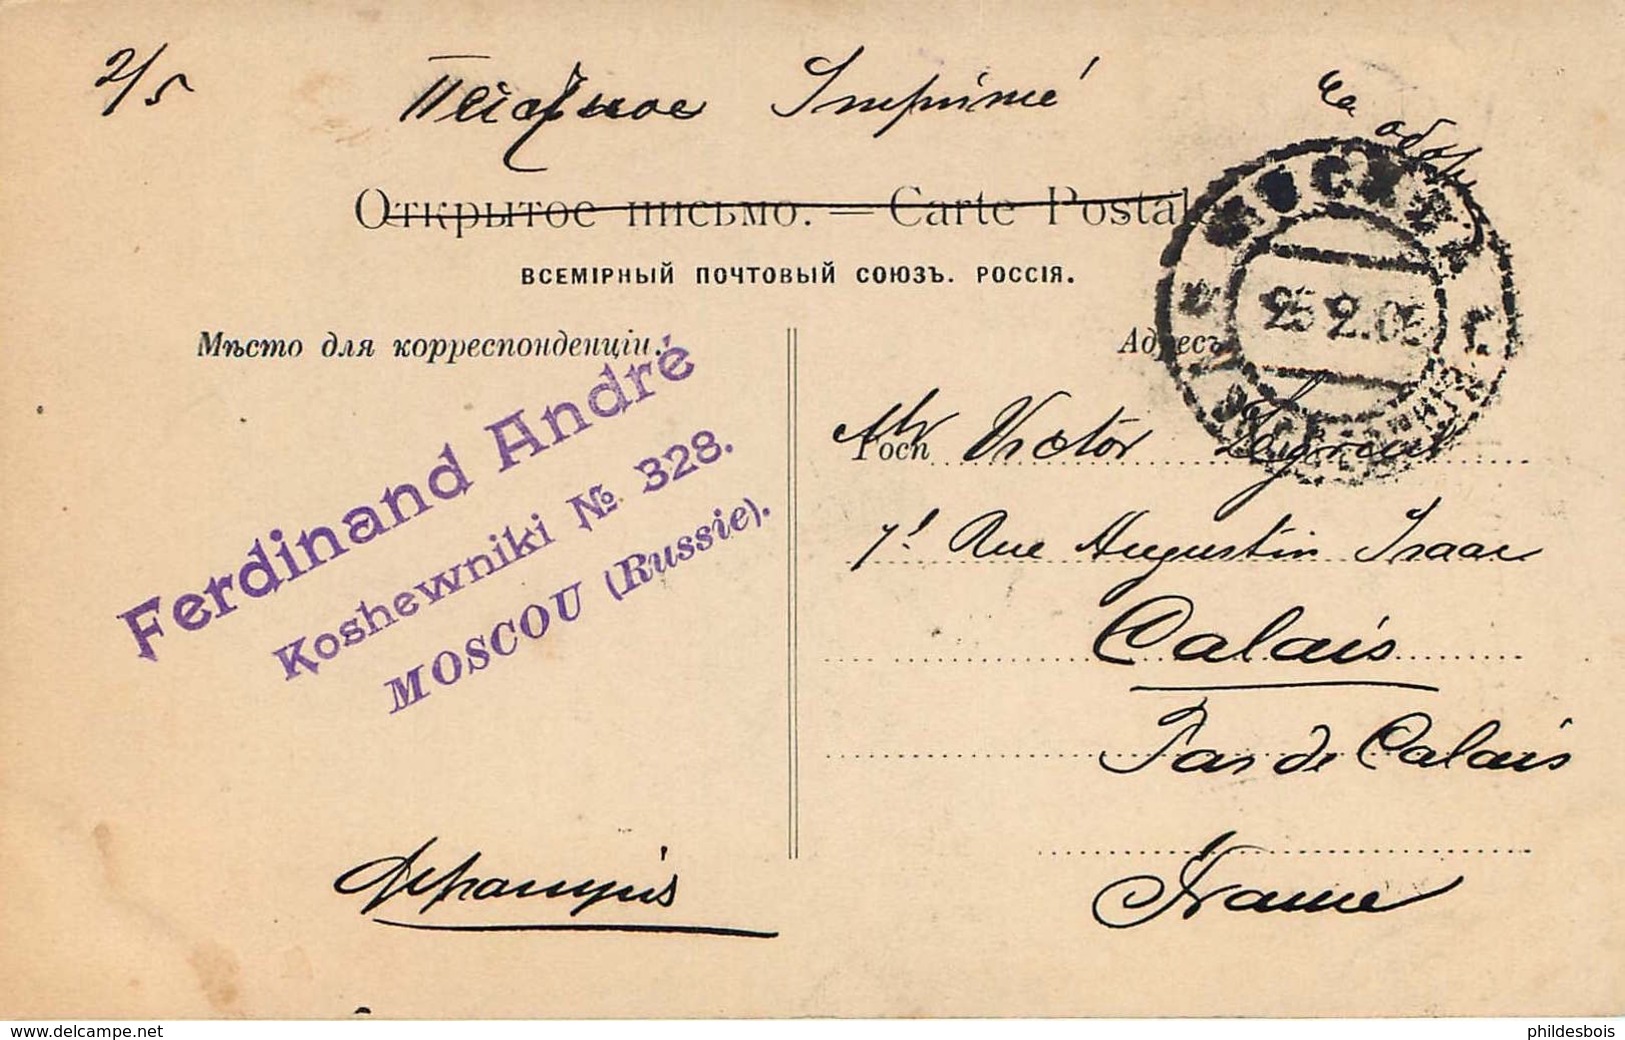 2/5
Печатное Imprimé
На обор
Открытое письмо. — Carte Postale
ВСЕМІРНЫЙ ПОЧТОВЫЙ СОЮЗЪ. РОССІЯ.
МОСКВА
25 2 05
Мѣсто для корреспонденціи.
Адресъ
Ferdinand André
Koshewniki № 328.
MOSCOU (Russie).
Mr Victor
7! Rue Augustin Isaac
Calais
Pas de Calais
France
www.delcampe.net
phildesbois